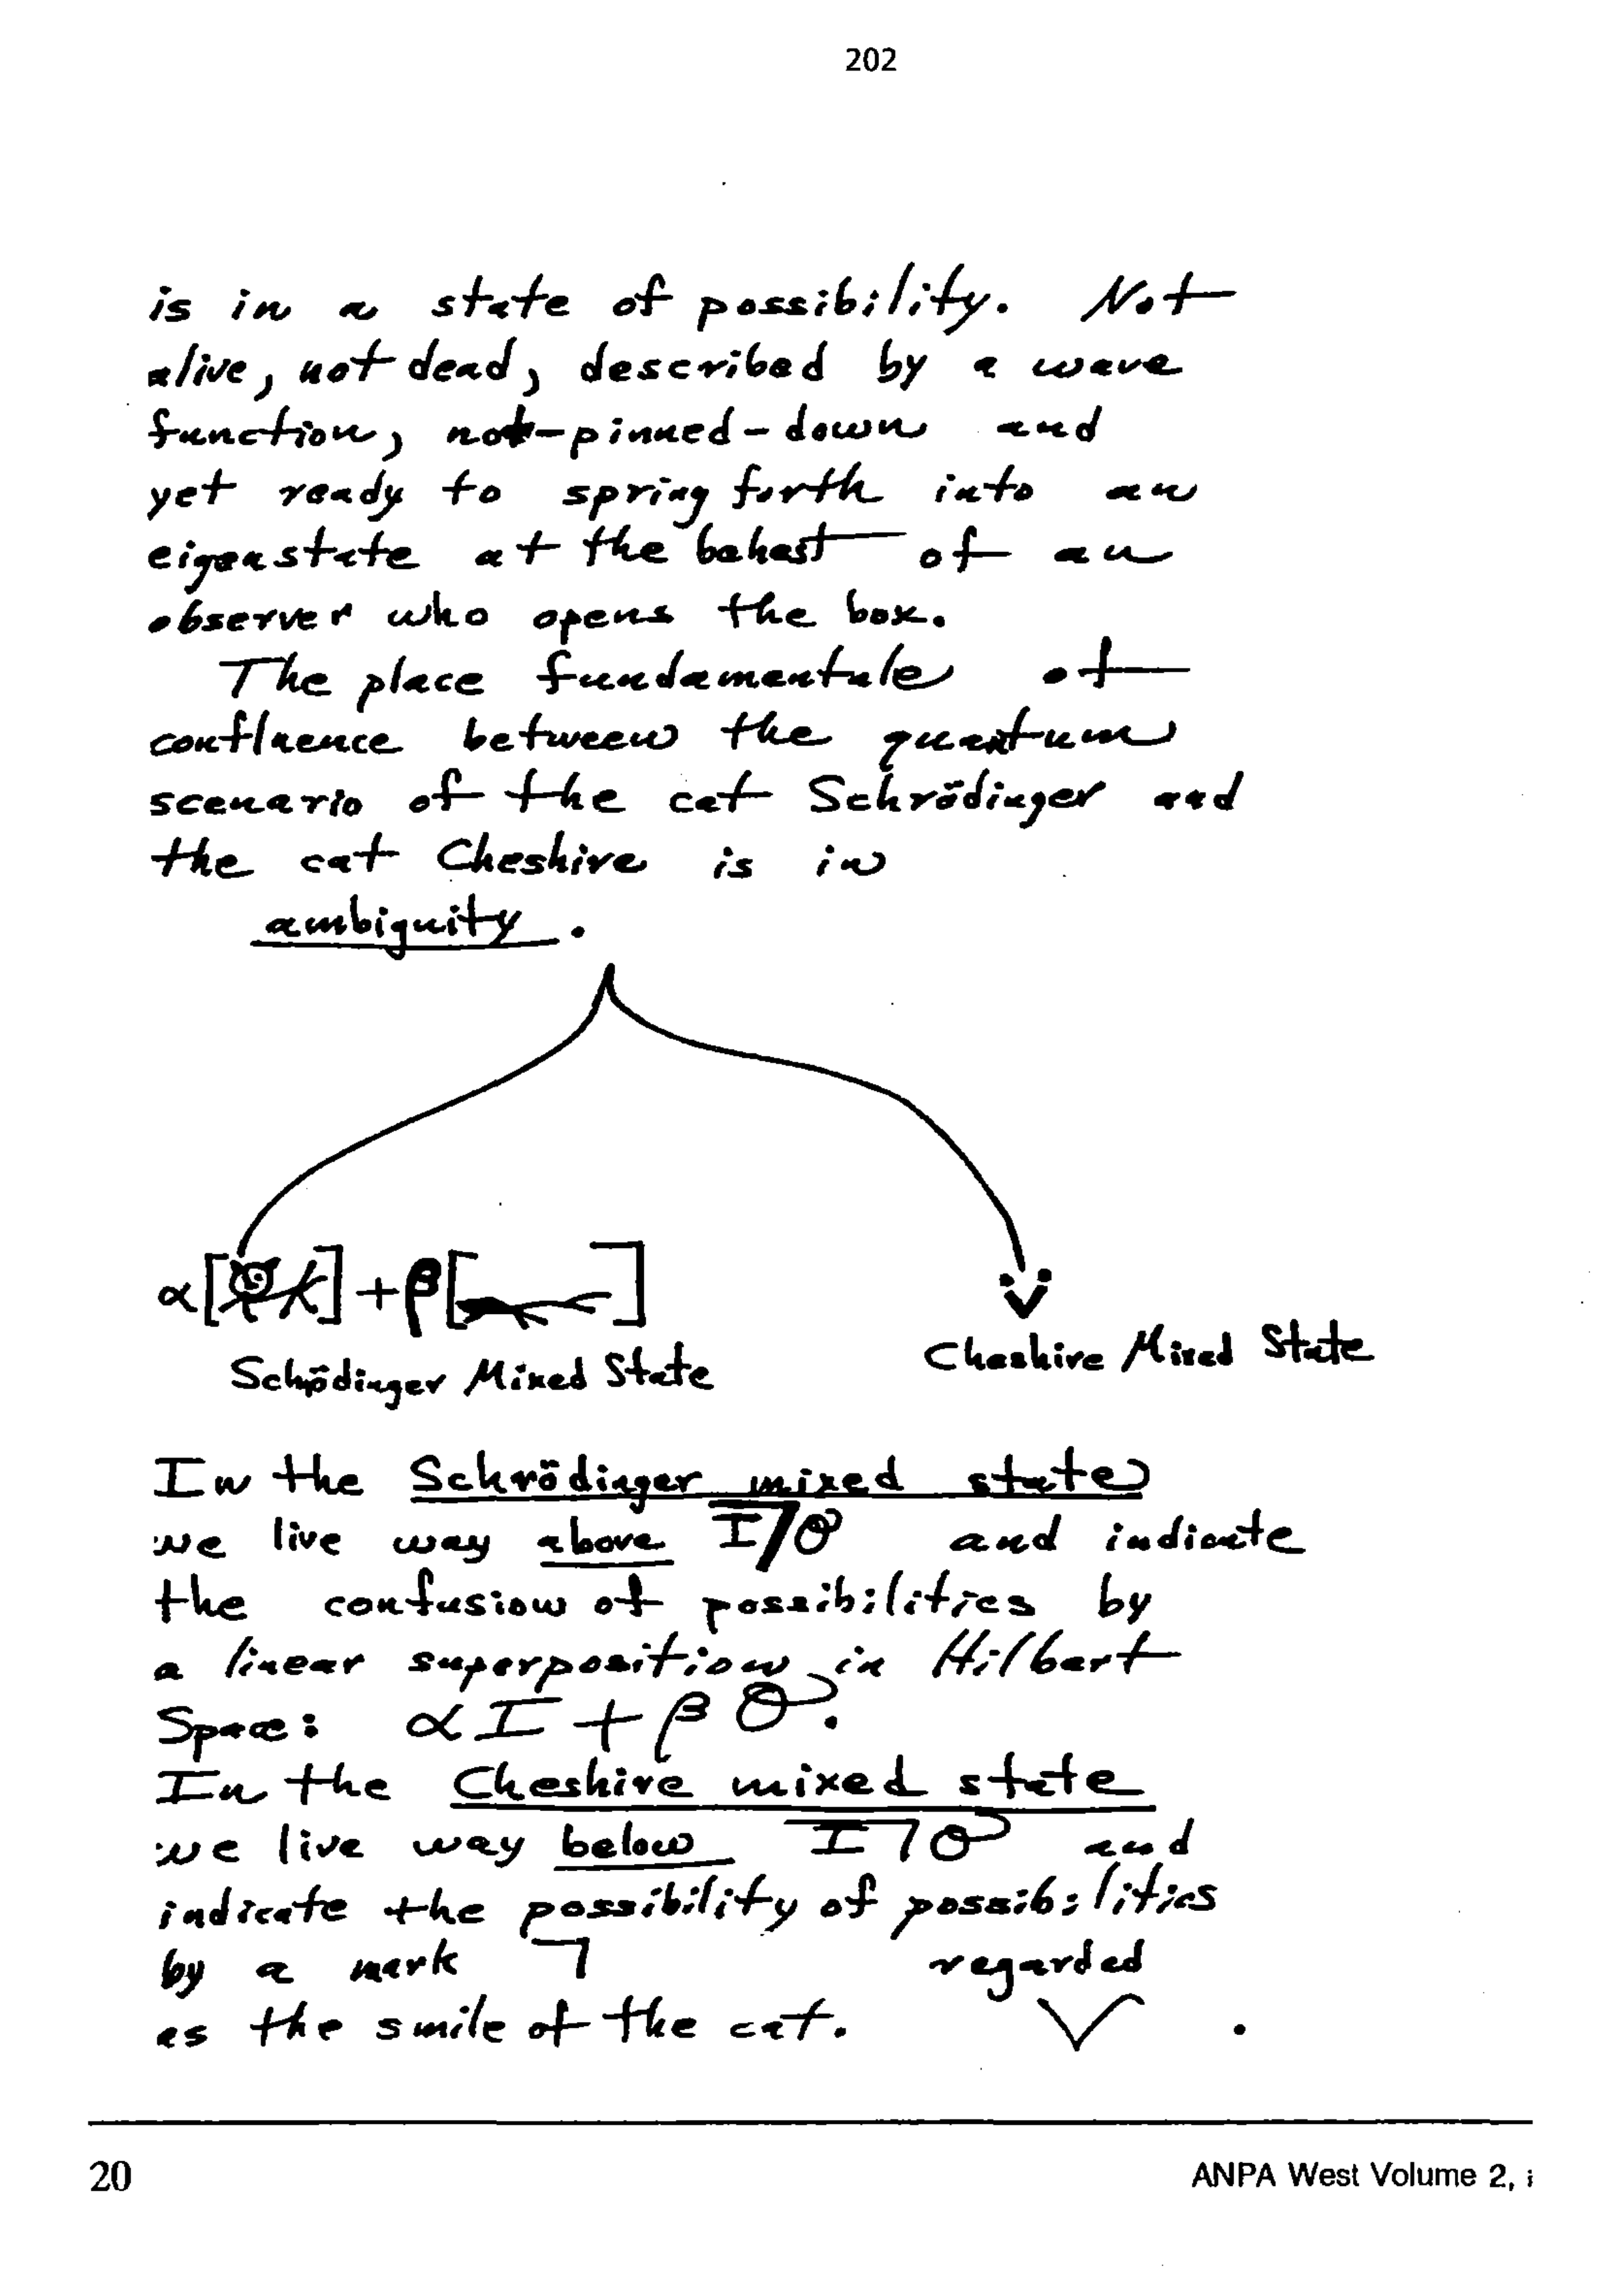 202
is in a state of possibility. Not
alive, not dead, described by a wave
function, not-pinned-down and
yet ready to spring forth into an
eigenstate at the behest of an
observer who opens the box.
The place fundamentale of
confluence between the quantum
scenario of the cat Schrödinger and
the cat Cheshire is in
ambiguity.
α[ ] + β[ ]
Schrödinger Mixed State
Cheshire Mixed State
In the Schrödinger mixed state
we live way above I/O and indicate
the confusion of possibilities by
a linear superposition in Hilbert
Space: αI + βO.
In the Cheshire mixed state
we live way below I⌝O and
indicate the possibility of possibilities
by a mark ⌝ regarded
as the smile of the cat. ∨ .
20
ANPA West Volume 2, i